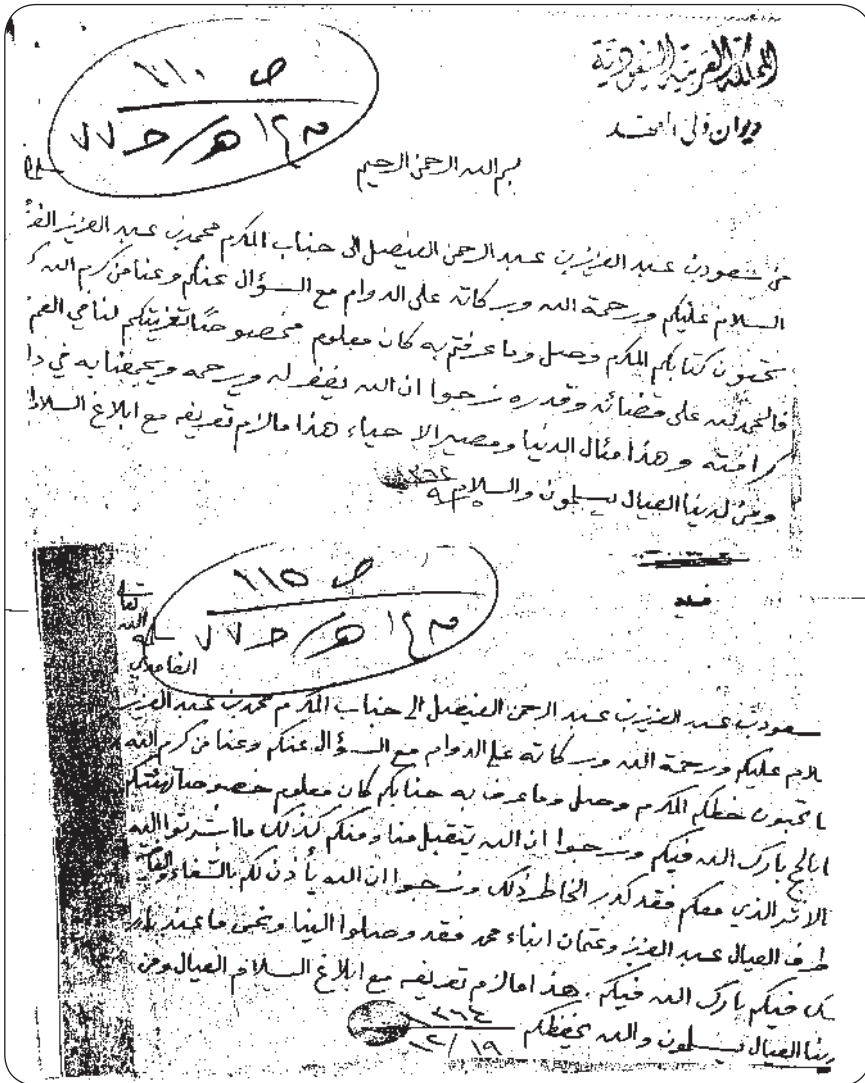 المملكة العربية السعودية
ديوان ولي العهد
ص ٢١٠
بسم الله الرحمن الرحيم
من سعود بن عبد العزيز بن عبد الرحمن الفيصل الى جناب المكرم محمد بن عبد العزيز
السلام عليكم ورحمة الله وبركاته على الدوام مع السؤال عنكم وعنا من كرم الله
تحبون كتابكم المكرم وصل وما عرفتم به كان معلوم مخصوصًا تعزيتكم لنا في العم
فالحمد لله على قضائه وقدره نرجوا ان الله يغفر له ويرحمه ويجمعنا به في دا
كرامته وهذا مثال الدنيا ومصير الاحياء هذا ما لازم تعريفه مع ابلاغ السلام
ومن لدينا العيال يسلمون والسلام
ص ٢١٥
الغامدي
سعود بن عبد العزيز بن عبد الرحمن الفيصل الى جناب المكرم محمد بن عبد العزيز
لام عليكم ورحمة الله وبركاته على الدوام مع السؤال عنكم وعنا من كرم الله
ما تحبون خطكم المكرم وصل وما عرف به جنابكم كان معلوم خصوصا تهنئتكم
بارك الله فيكم ونرجوا ان الله يتقبل منا ومنكم كذلك ما اشرتوا اليه
الاثر الذي معكم فقد كدر الخاطر ذلك ونرجوا ان الله يأذن لكم بالشفاء
طرف العيال عبد العزيز وعثمان ابناء محمد فقد وصلوا الينا ونحن ما عند
فيكم بارك الله فيكم . هذا ما لازم تعريفه مع ابلاغ السلام العيال ومن
العيال يسلمون والله يحفظكم ٣٦٤ ١٩/١٢